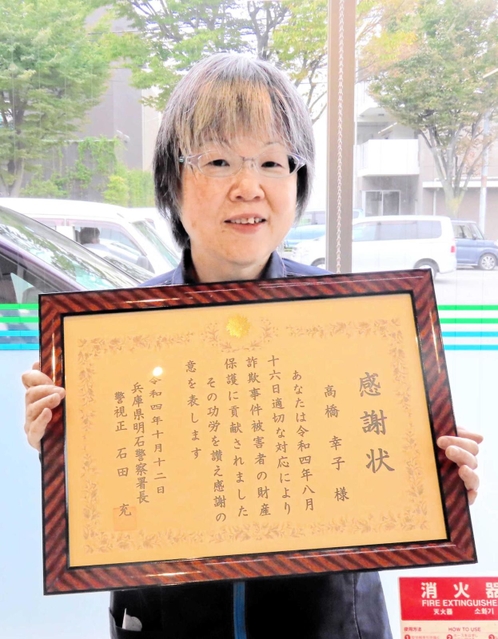 感謝状
高橋 幸子 様
あなたは令和四年八月
十六日適切な対応により
詐欺事件被害者の財産
保護に貢献されました
その功労を讃え感謝の
意を表します
令和四年十月十二日
兵庫県明石警察署長
警視正 石田 充
消火器
FIRE EXTINGUISHER
灭火器 소화기
使用方法 HOW TO USE